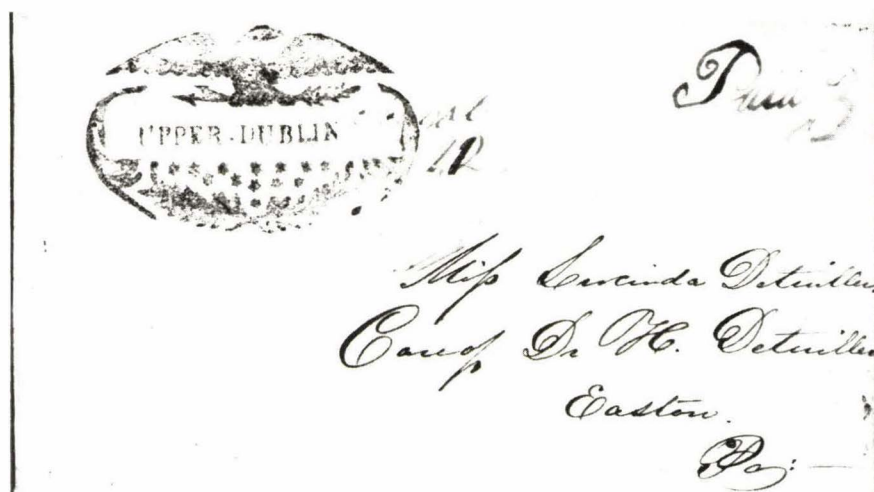 UPPER-DUBLIN
Paid 3
12
Miss Lucinda Detwiller
Care of Dr H. Detwiller
Easton.
Pa: